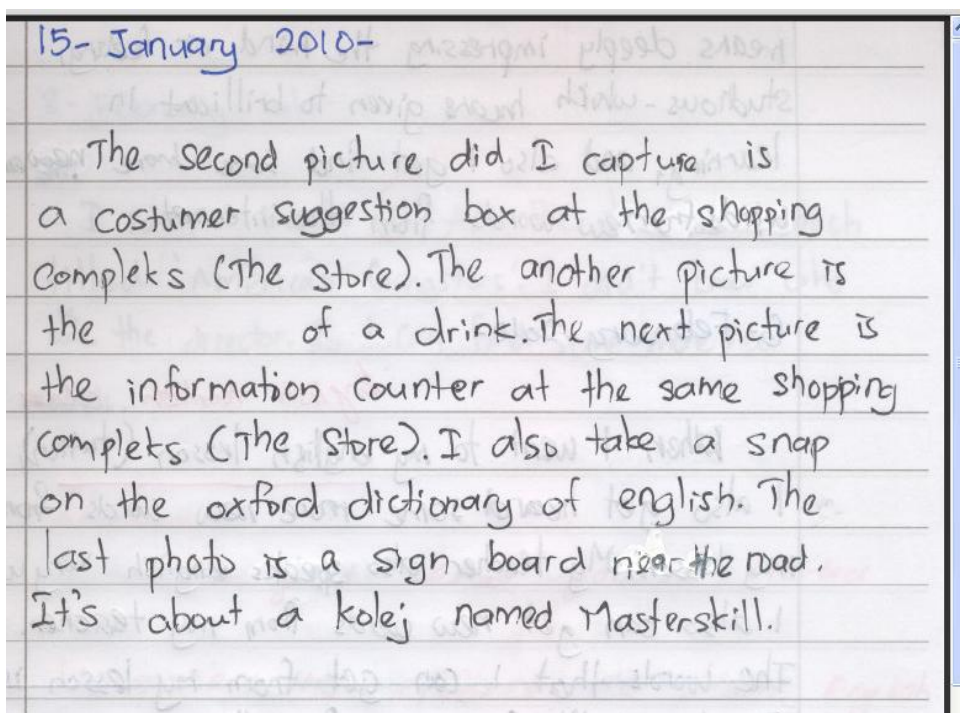 15- January 2010-
The second picture did I capture is
a costumer suggestion box at the shopping
compleks (The Store). The another picture is
the of a drink. The next picture is
the information counter at the same shopping
compleks (The Store). I also take a snap
on the oxford dictionary of english. The
last photo is a sign board near the road.
It's about a kolej named Masterskill.